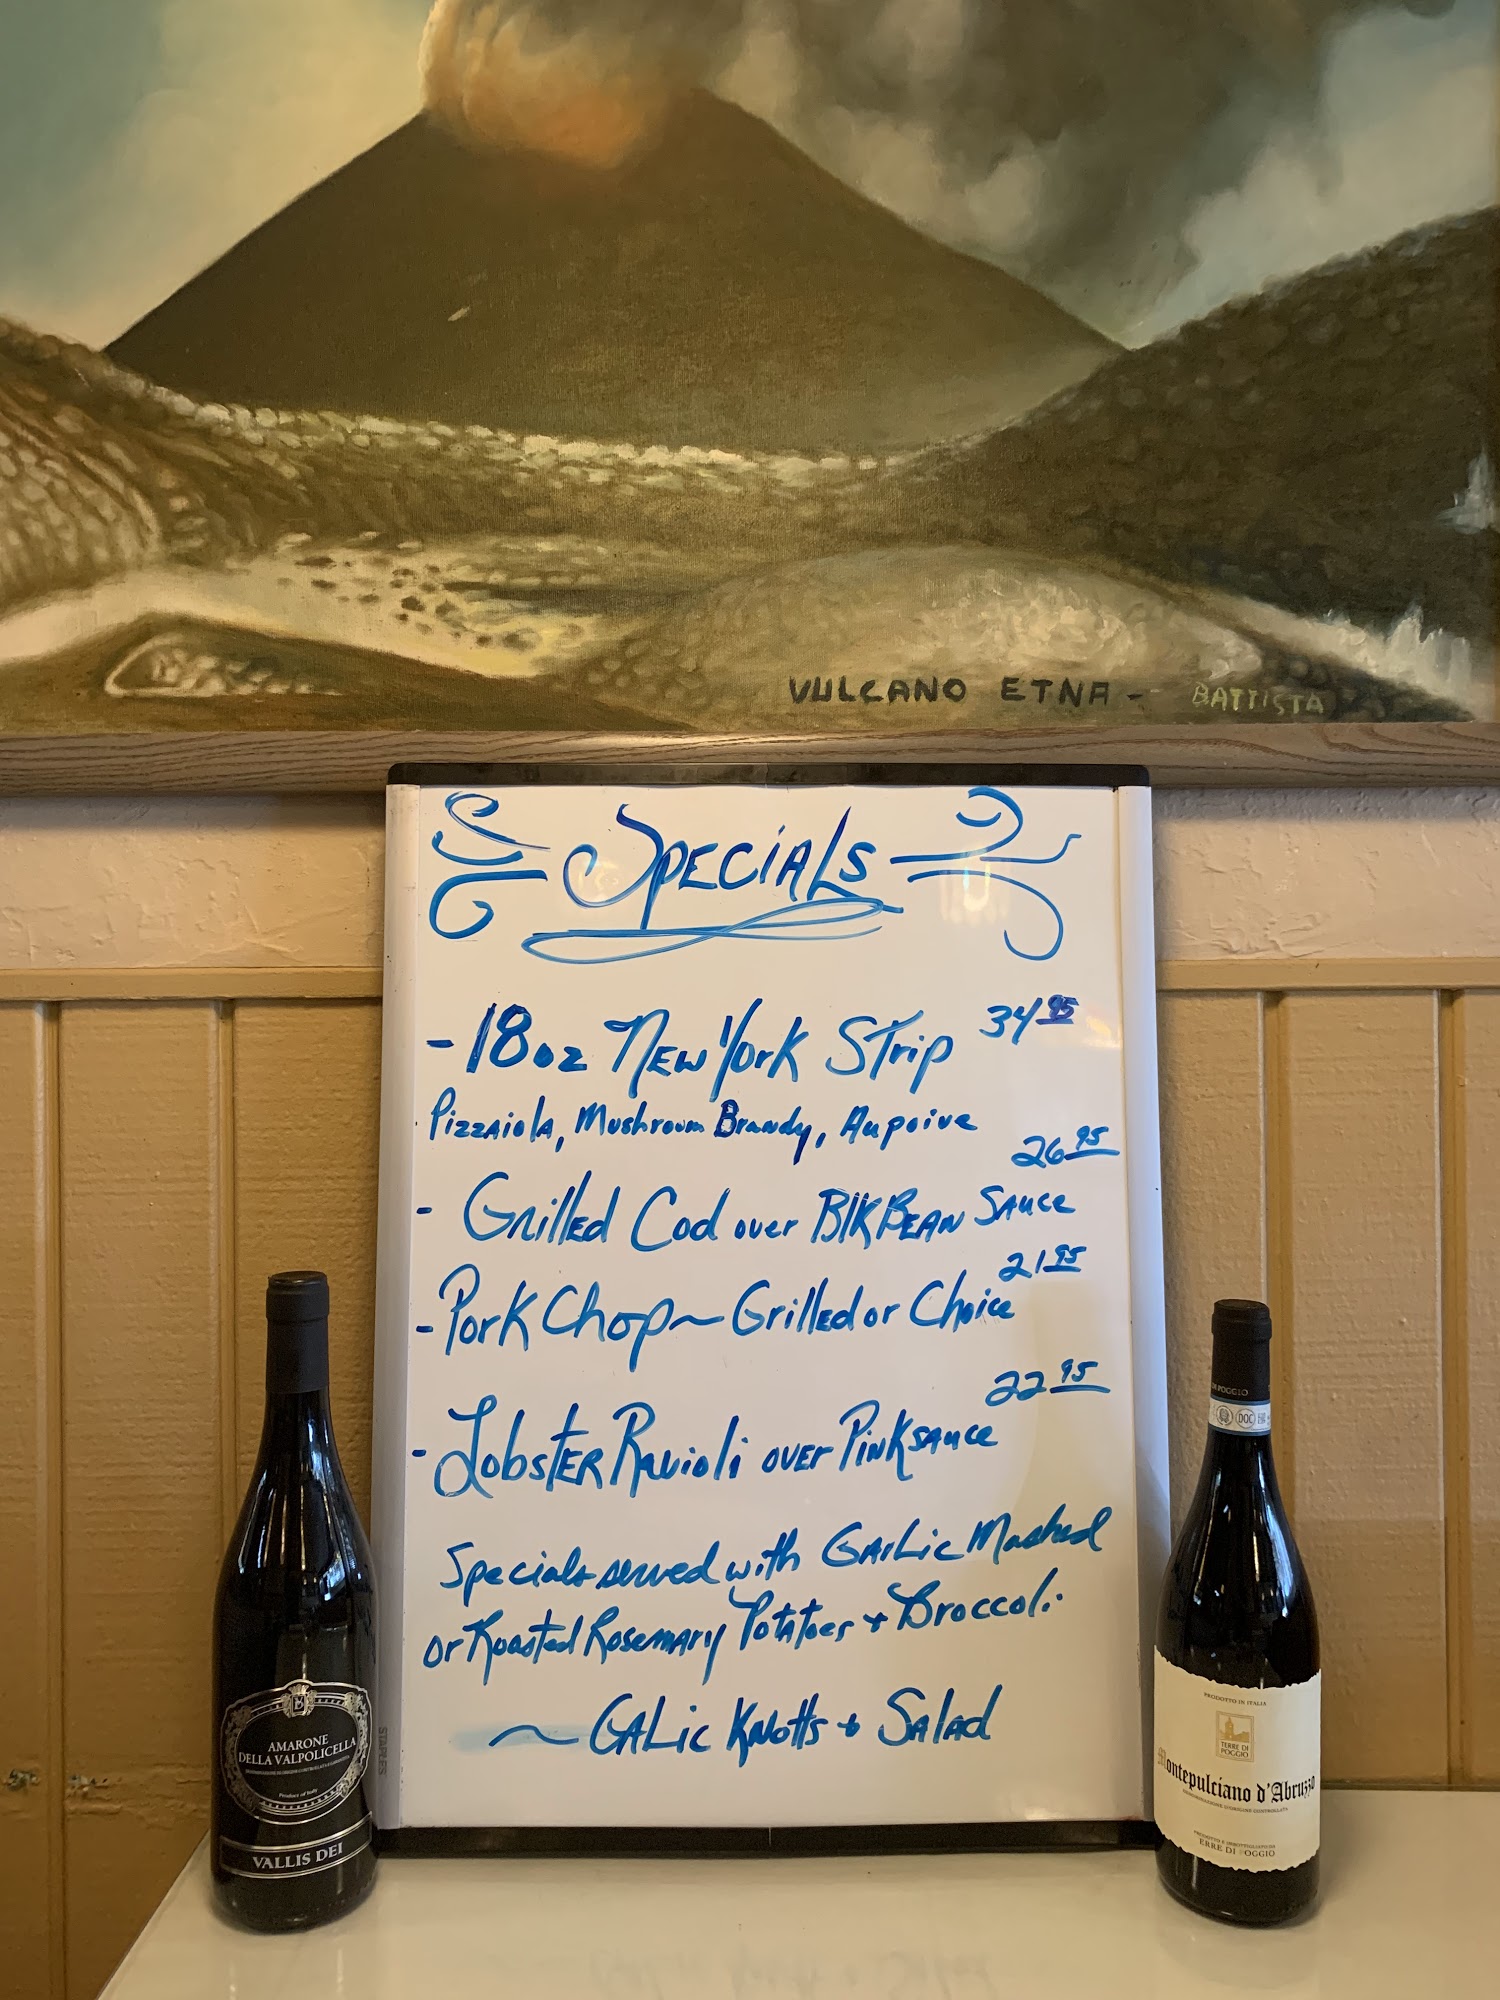 VULCANO ETNA - BATTISTA
Specials
- 18oz New York Strip 34 95
Pizzaiola, Mushroom Brandy, Aupoive
26 95
- Grilled Cod over Blk Bean Sauce
21 95
- Pork Chop ~ Grilled or Choice
22 95
- Lobster Ravioli over Pink sauce
Specials served with Garlic Mashed
or Roasted Rosemary Potatoes + Broccoli.
~ Galic Knotts + Salad
STAPLES
AMARONE
DELLA VALPOLICELLA
Product of Italy
VALLIS DEI
DI POGGIO
DOC
PRODOTTO IN ITALIA
TERRE DI
POGGIO
Montepulciano d'Abruzzo
DENOMINAZIONE D'ORIGINE CONTROLLATA
ERRE DI POGGIO